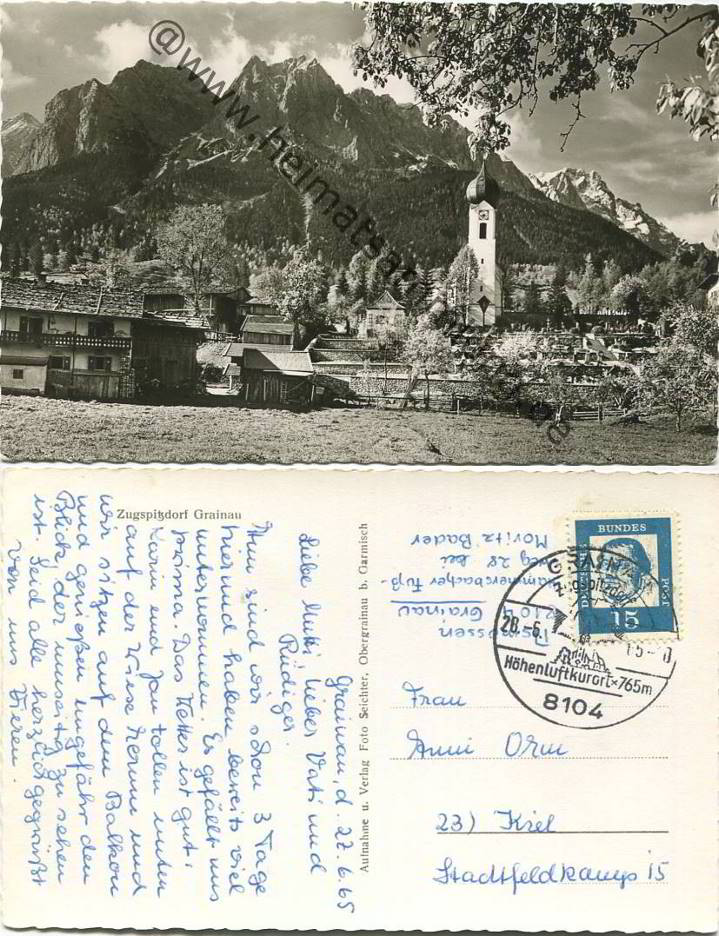 @www.heimatsammlung.de
Zugspitzdorf Grainau
Grainau, d. 22.6.65
Liebe Mutti, lieber Vati und
Rüdiger.
Nun sind wir schon 3 Tage
hier und haben bereits viel
unternommen. Es gefällt uns
prima. Das Wetter ist gut.
Karin und Jan tollen unten
auf der Wiese herum und
wir sitzen auf dem Balkon
und genießen ungefähr den
Blick, der umseitig zu sehen
ist. Seid alle herzlich gegrüßt
von uns Vieren.
Aufnahme u. Verlag Foto Seichter, Obergrainau b. Garmisch
8104
Grainau
Hammersbacher Fuß-
weg 28 bei
Moritz Bader
DEUTSCHE
BUNDES
POST
15
GRAINAU
Zugspitzdorf
28.-6.
Höhenluftkurort × 765m
8104
Frau
Anni Orm
23) Kiel
Stadtfeldkamp 15